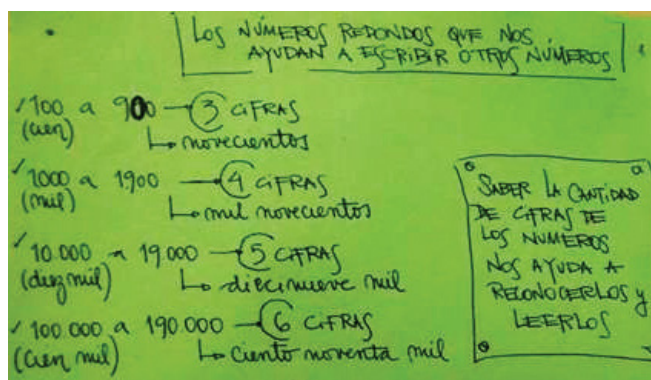 LOS NÚMEROS REDONDOS QUE NOS
AYUDAN A ESCRIBIR OTROS NÚMEROS
✓100 a 900 → 3 CIFRAS
(cien) ↳ novecientos
✓1000 a 1900 → 4 CIFRAS
(mil) ↳ mil novecientos
✓10.000 a 19.000 → 5 CIFRAS
(diez mil) ↳ diecinueve mil
✓100.000 a 190.000 → 6 CIFRAS
(cien mil) ↳ ciento noventa mil
SABER LA CANTIDAD
DE CIFRAS DE
LOS NUMEROS
NOS AYUDA A
RECONOCERLOS y
LEERLOS